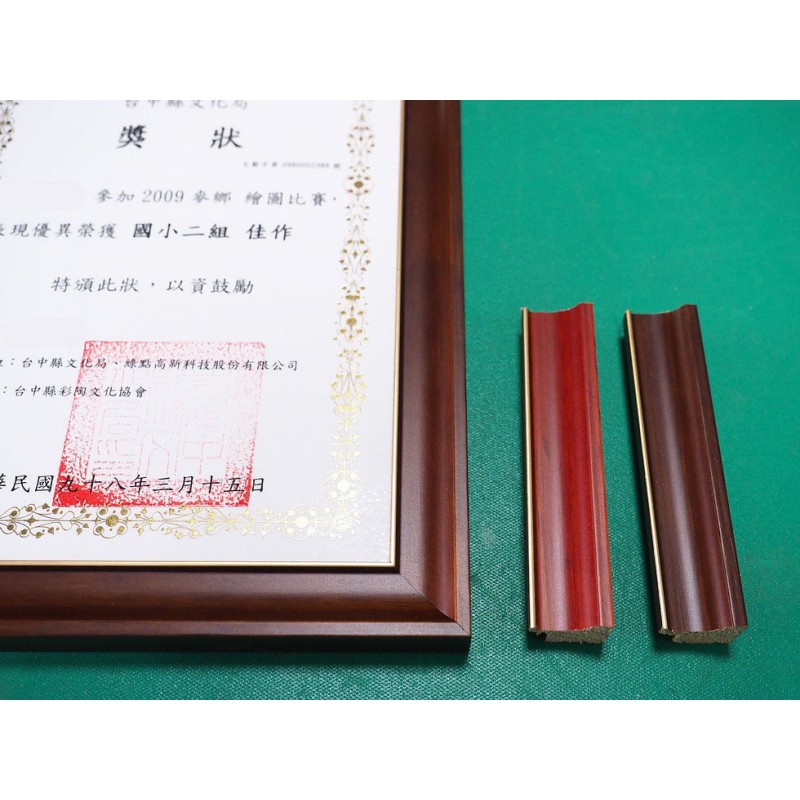 台中縣文化局
獎狀
參加2009麥鄉 繪圖比賽，
表現優異榮獲 國小二組 佳作
特頒此狀，以資鼓勵
：台中縣文化局、綠點高新科技股份有限公司
：台中縣彩陶文化協會
華民國九十八年三月十五日